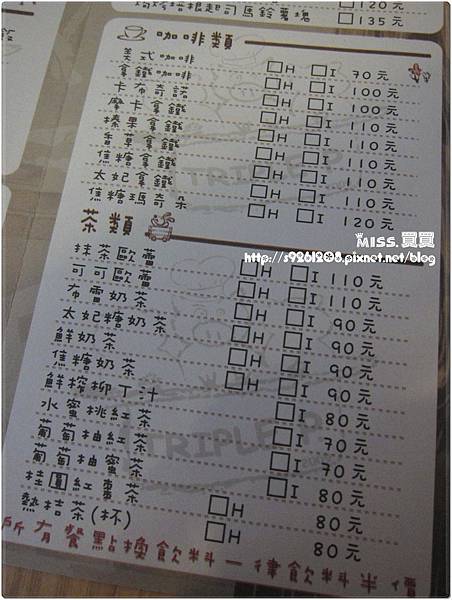 焗烤培根起司馬鈴薯塊
120元
□ 135元
飯
咖啡類
美式咖啡 □H □I 70元
拿鐵咖啡 □H □I 100元
卡布奇諾 □H □I 100元
摩卡拿鐵 □H □I 110元
榛果拿鐵 □H □I 110元
香草拿鐵 □H □I 110元
焦糖拿鐵 □H □I 110元
太妃拿鐵 □H □I 110元
焦糖瑪奇朵 □H □I 120元
茶類
抹茶歐蕾 □H □I 110元
可可歐蕾 □H □I 110元
布雷奶茶 □H □I 90元
太妃糖奶茶 □H □I 90元
鮮奶茶 □H □I 90元
焦糖奶茶 □H □I 90元
鮮榨柳丁汁 □I 80元
水蜜桃紅茶 □I 70元
葡萄柚紅茶 □I 70元
葡萄柚蜜茶 □I 80元
桂圓紅棗茶 □H 80元
熱桔茶(杯) □H 80元
所有餐點換飲料一律飲料半價
TRIPLE P
TRIPLE P
MISS.貝貝
http://s9261208.pixnet.net/blog